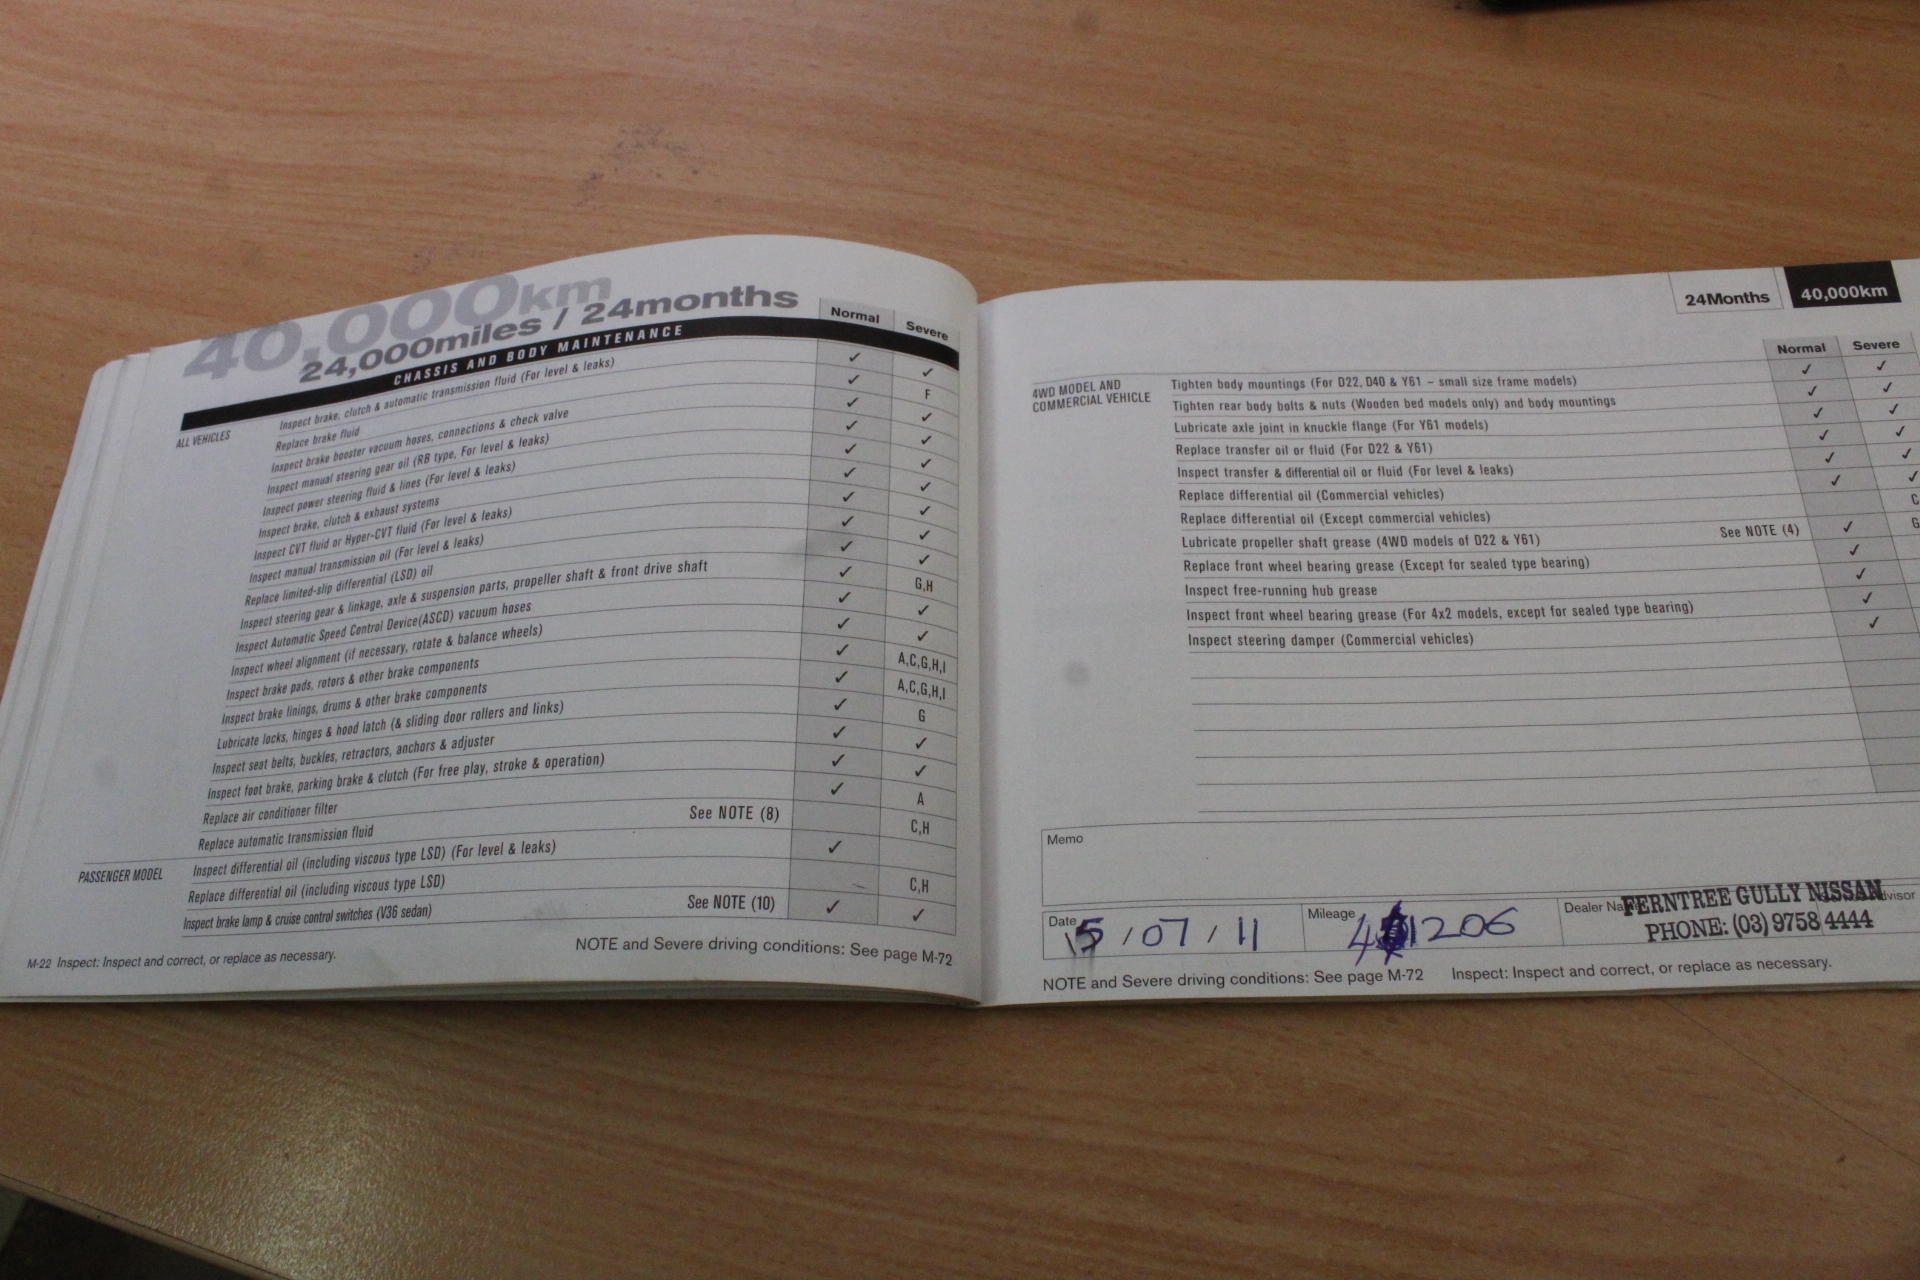 40,000km
24,000miles / 24months
Normal Severe
CHASSIS AND BODY MAINTENANCE
ALL VEHICLES
Inspect brake, clutch & automatic transmission fluid (For level & leaks) ✓ ✓
Replace brake fluid ✓ F
Inspect brake booster vacuum hoses, connections & check valve ✓ ✓
Inspect manual steering gear oil (RB type, For level & leaks) ✓ ✓
Inspect power steering fluid & lines (For level & leaks) ✓ ✓
Inspect brake, clutch & exhaust systems ✓ ✓
Inspect CVT fluid or Hyper-CVT fluid (For level & leaks) ✓ ✓
Inspect manual transmission oil (For level & leaks) ✓ ✓
Replace limited-slip differential (LSD) oil ✓ ✓
Inspect steering gear & linkage, axle & suspension parts, propeller shaft & front drive shaft ✓ G,H
Inspect Automatic Speed Control Device(ASCD) vacuum hoses ✓ ✓
Inspect wheel alignment (if necessary, rotate & balance wheels) ✓ ✓
Inspect brake pads, rotors & other brake components ✓ A,C,G,H,I
Inspect brake linings, drums & other brake components ✓ A,C,G,H,I
Lubricate locks, hinges & hood latch (& sliding door rollers and links) ✓ G
Inspect seat belts, buckles, retractors, anchors & adjuster ✓ ✓
Inspect foot brake, parking brake & clutch (For free play, stroke & operation) ✓ ✓
Replace air conditioner filter ✓ A
Replace automatic transmission fluid See NOTE (8) C,H
PASSENGER MODEL
Inspect differential oil (including viscous type LSD) (For level & leaks) ✓
Replace differential oil (including viscous type LSD) C,H
Inspect brake lamp & cruise control switches (V36 sedan) See NOTE (10) ✓ ✓
NOTE and Severe driving conditions: See page M-72
M-22 Inspect: Inspect and correct, or replace as necessary.
24Months 40,000km
Normal Severe
4WD MODEL AND
COMMERCIAL VEHICLE
Tighten body mountings (For D22, D40 & Y61 – small size frame models) ✓ ✓
Tighten rear body bolts & nuts (Wooden bed models only) and body mountings ✓ ✓
Lubricate axle joint in knuckle flange (For Y61 models) ✓ ✓
Replace transfer oil or fluid (For D22 & Y61) ✓ ✓
Inspect transfer & differential oil or fluid (For level & leaks) ✓ ✓
Replace differential oil (Commercial vehicles) ✓ ✓
Replace differential oil (Except commercial vehicles)
Lubricate propeller shaft grease (4WD models of D22 & Y61) See NOTE (4) ✓ G
Replace front wheel bearing grease (Except for sealed type bearing) ✓
Inspect free-running hub grease ✓
Inspect front wheel bearing grease (For 4x2 models, except for sealed type bearing) ✓
Inspect steering damper (Commercial vehicles) ✓
Memo
Date 15 / 07 / 11
Mileage 41206
Dealer Name
FERNTREE GULLY NISSAN
PHONE: (03) 9758 4444
NOTE and Severe driving conditions: See page M-72 Inspect: Inspect and correct, or replace as necessary.